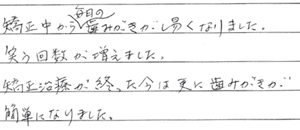 矯正中から毎日の歯みがきがし易くなりました。
笑う回数が増えました。
矯正治療が終った今は更に歯みがきが
簡単になりました。